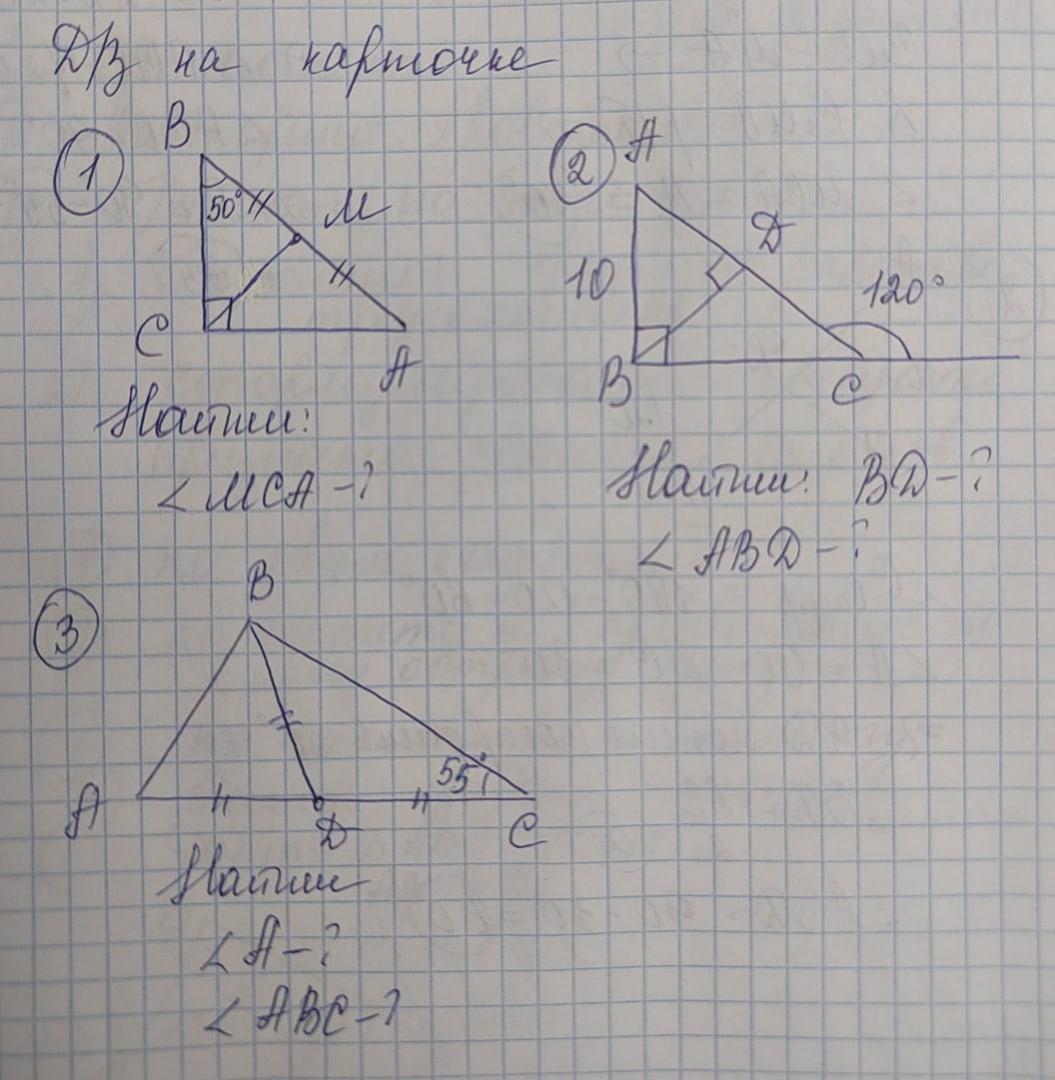 ДЗ на карточке
1
B
50°
M
C
A
Найти:
∠MCA-?
2
A
D
10
120°
B
C
Найти: BD-?
∠ABD-?
3
B
55°
A
D
C
Найти
∠A-?
∠ABC-?